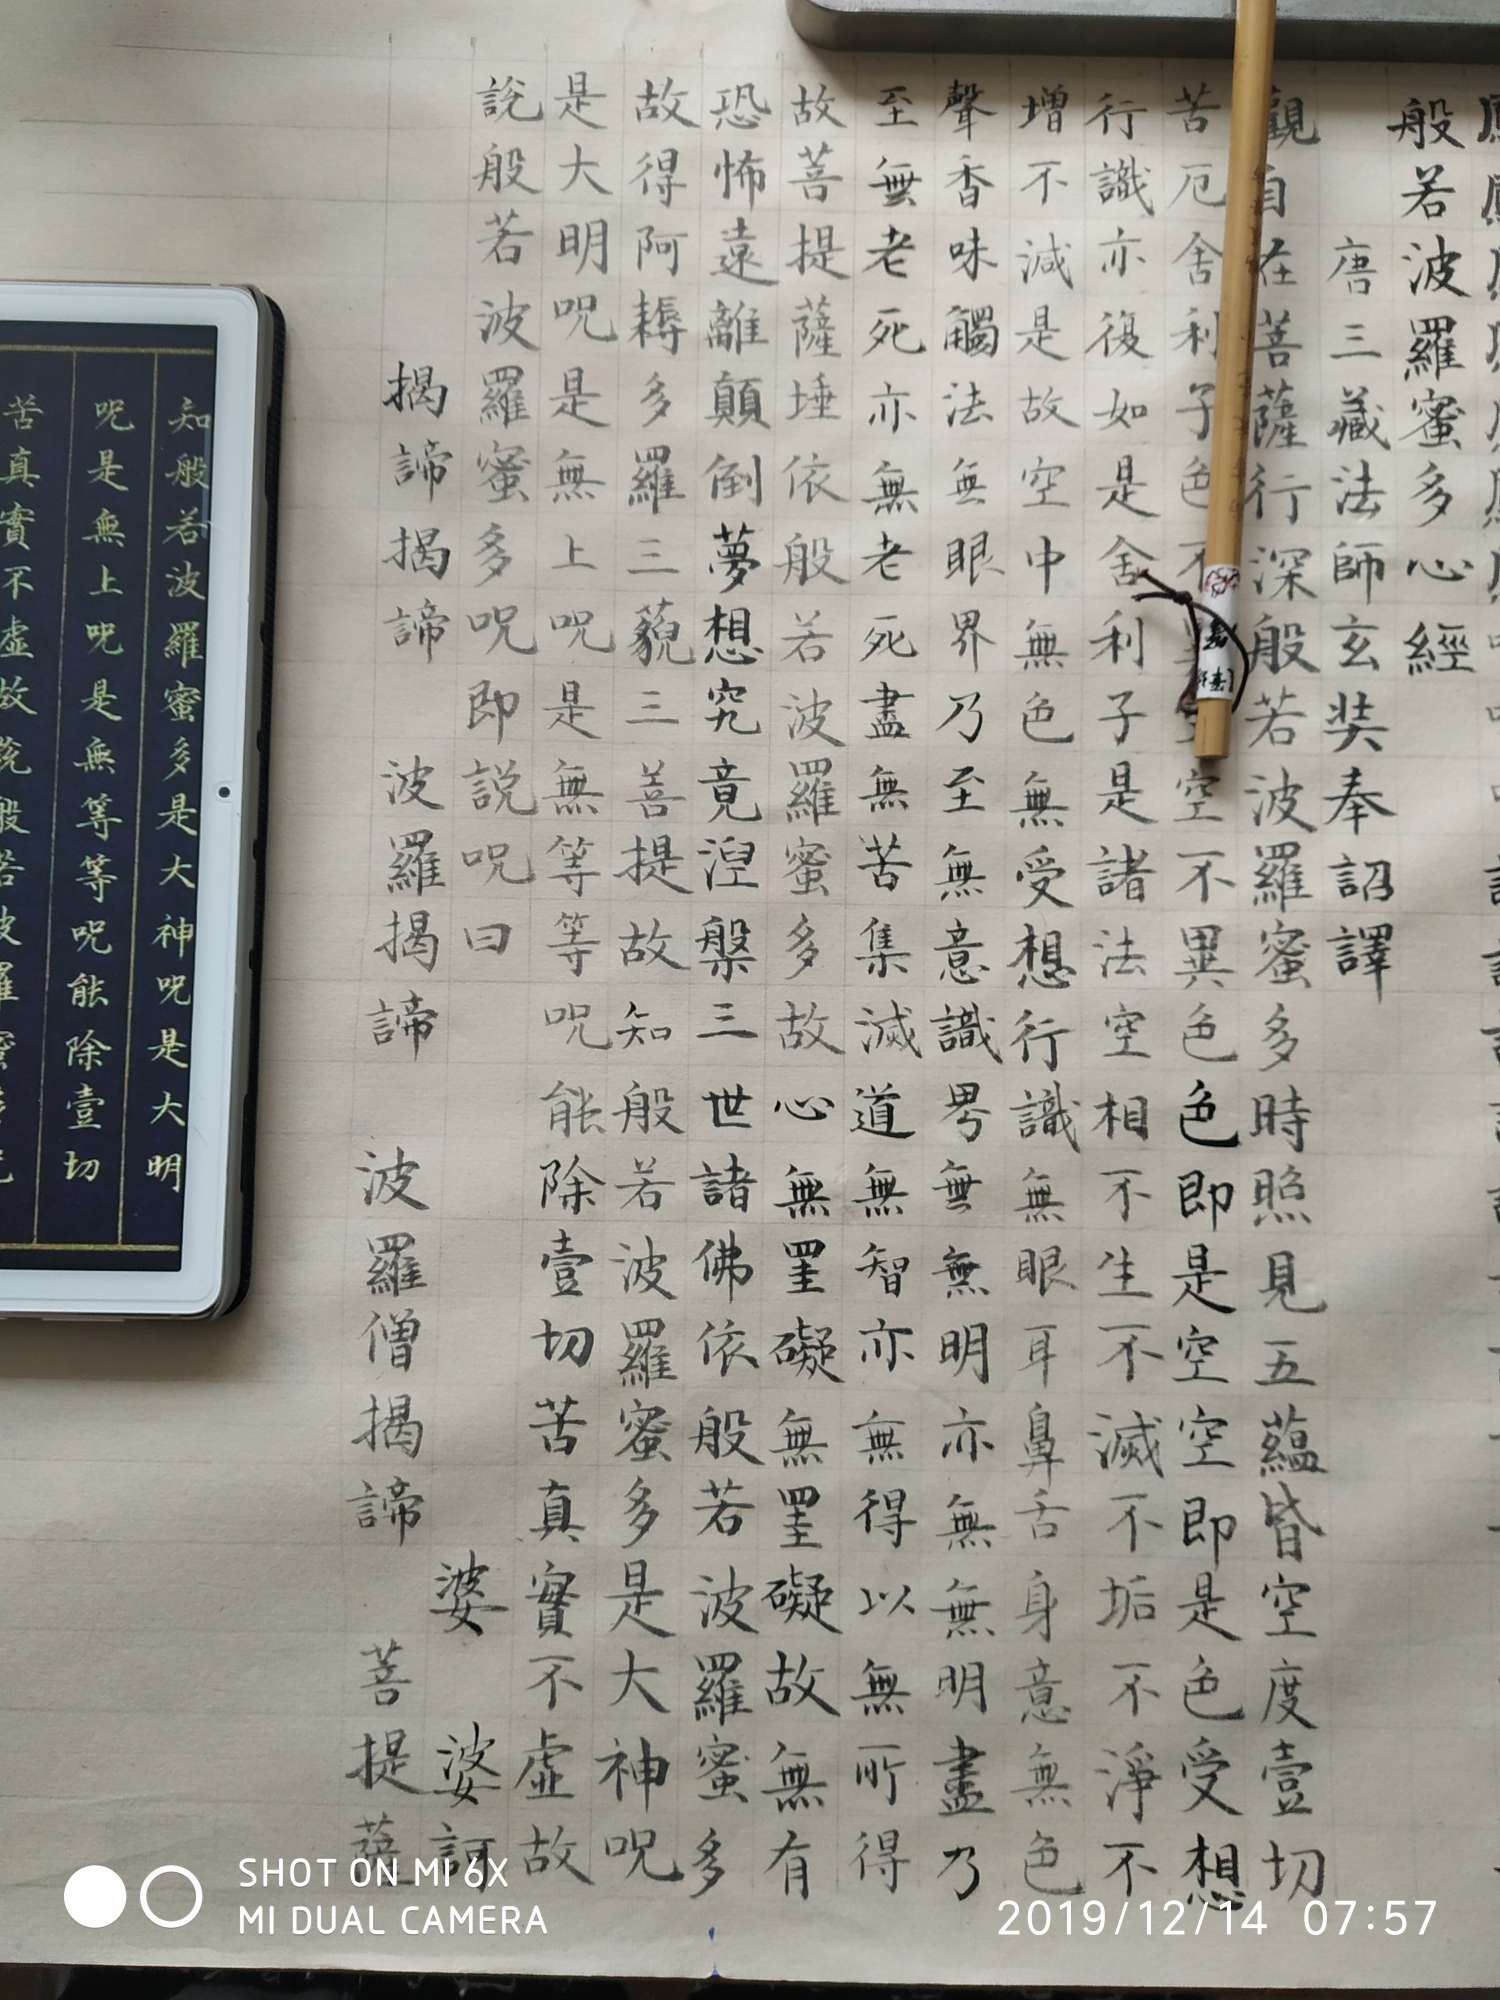 般若波羅蜜多心經
唐三藏法師玄奘奉詔譯
觀自在菩薩行深般若波羅蜜多時照見五蘊皆空度壹切
苦厄舍利子色不異空空不異色色即是空空即是色受想
行識亦復如是舍利子是諸法空相不生不滅不垢不淨不
增不減是故空中無色無受想行識無眼耳鼻舌身意無色
聲香味觸法無眼界乃至無意識界無無明亦無無明盡乃
至無老死亦無老死盡無苦集滅道無智亦無得以無所得
故菩提薩埵依般若波羅蜜多故心無罣礙無罣礙故無有
恐怖遠離顛倒夢想究竟涅槃三世諸佛依般若波羅蜜多
故得阿耨多羅三藐三菩提故知般若波羅蜜多是大神呪
是大明呪是無上呪是無等等呪能除壹切苦真實不虛故
說般若波羅蜜多呪即說呪曰 婆 婆訶
揭諦揭諦 波羅揭諦 波羅僧揭諦 菩提薩
知般若波羅蜜多是大神呪是大明
呪是無上呪是無等等呪能除壹切
苦真實不虛故說般若波羅蜜多
SHOT ON MI 6X
MI DUAL CAMERA
2019/12/14 07:57